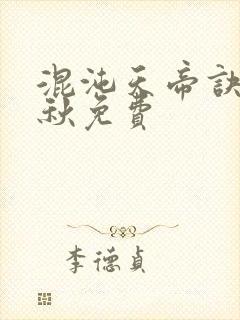 混沌天帝訣
秋免費
李德貞